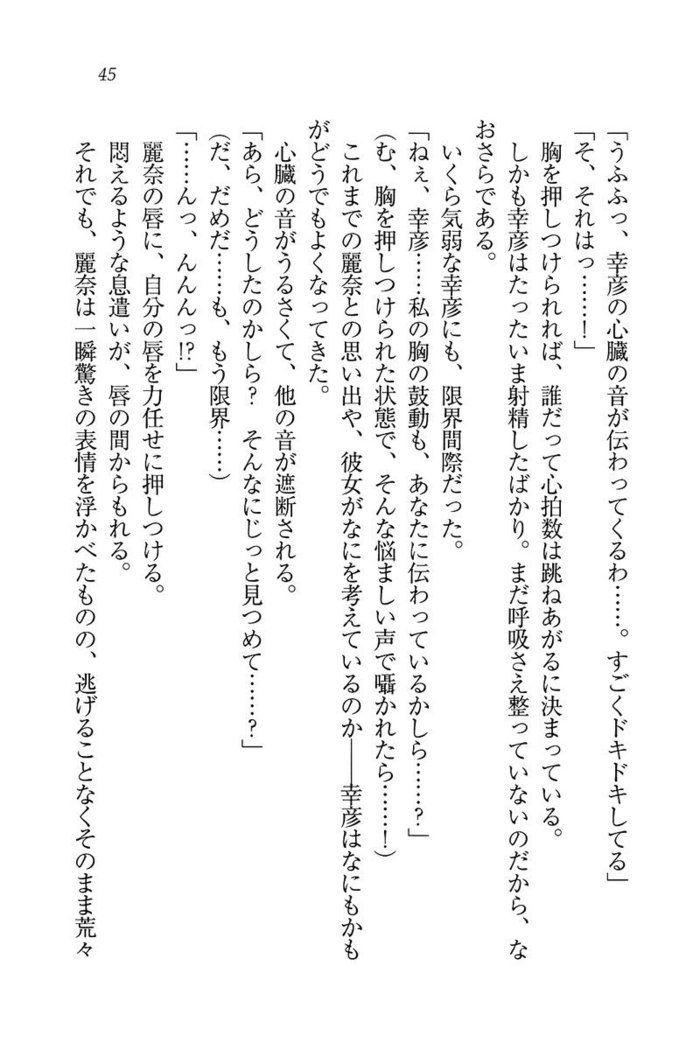 45
「うふふっ、幸彦の心臓の音が伝わってくるわ……。すごくドキドキしてる」
「そ、それはっ……！」
胸を押しつけられれば、誰だって心拍数は跳ねあがるに決まっている。
しかも幸彦はたったいま射精したばかり。まだ呼吸さえ整っていないのだから、な
おさらである。
いくら気弱な幸彦にも、限界間際だった。
「ねぇ、幸彦……私の胸の鼓動も、あなたに伝わっているかしら……？」
(む、胸を押しつけられた状態で、そんな悩ましい声で囁かれたら……！)
これまでの麗奈との思い出や、彼女がなにを考えているのか――幸彦はなにもかも
がどうでもよくなってきた。
心臓の音がうるさくて、他の音が遮断される。
「あら、どうしたのかしら？　そんなにじっと見つめて……？」
(だ、だめだ……も、もう限界……)
「……んっ、んんんっ!?」
麗奈の唇に、自分の唇を力任せに押しつける。
悶えるような息遣いが、唇の間からもれる。
それでも、麗奈は一瞬驚きの表情を浮かべたものの、逃げることなくそのまま荒々